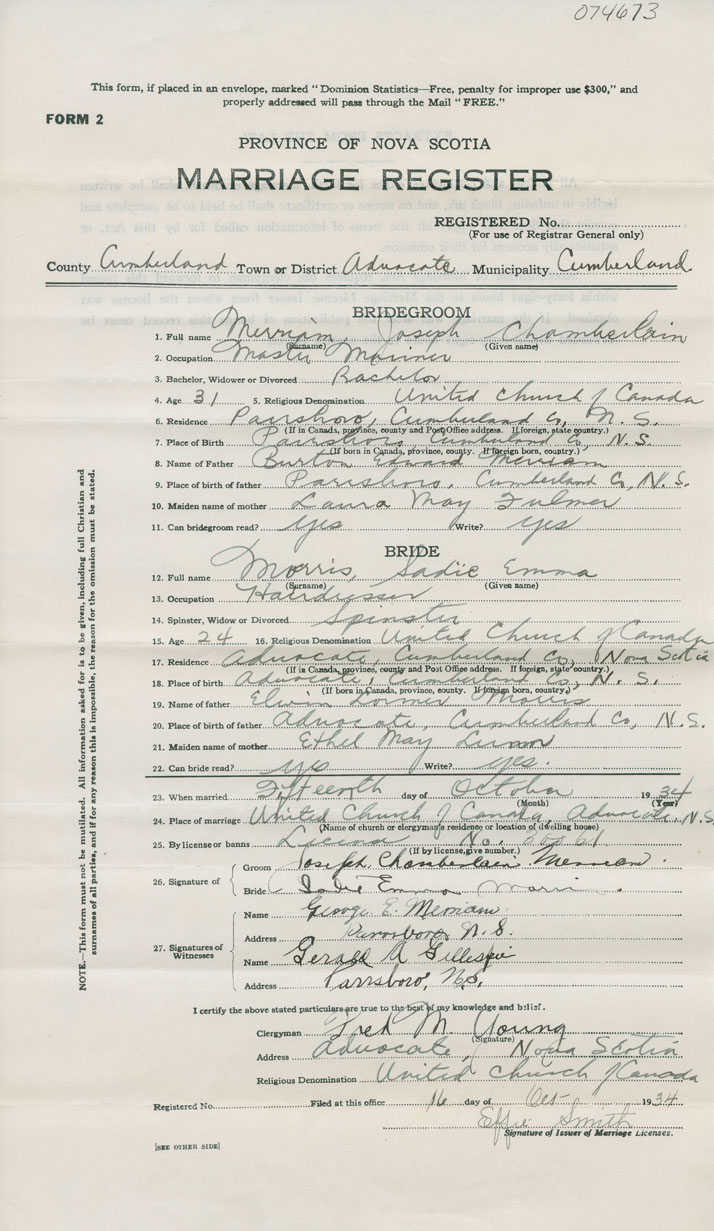 074673
This form, if placed in an envelope, marked "Dominion Statistics—Free, penalty for improper use $300," and
properly addressed will pass through the Mail "FREE."
FORM 2
PROVINCE OF NOVA SCOTIA
MARRIAGE REGISTER
REGISTERED No.
(For use of Registrar General only)
County Cumberland Town or District Advocate Municipality Cumberland
BRIDEGROOM
1. Full name Merriam, Joseph Chamberlain
(Surname) (Given name)
2. Occupation Master Mariner
3. Bachelor, Widower or Divorced Bachelor
4. Age 31 5. Religious Denomination United Church of Canada
6. Residence Parrsboro, Cumberland Co, N.S.
(If in Canada, province, county and Post Office address. If foreign, state country.)
7. Place of Birth Parrsboro, Cumberland Co, N.S.
(If born in Canada, province, county. If foreign born, country.)
8. Name of Father Burton Edward Merriam
9. Place of birth of father Parrsboro, Cumberland Co, N.S.
10. Maiden name of mother Laura May Fulmer
11. Can bridegroom read? yes Write? yes
BRIDE
12. Full name Morris, Sadie Emma
(Surname) (Given name)
13. Occupation Hairdresser
14. Spinster, Widow or Divorced Spinster
15. Age 24 16. Religious Denomination United Church of Canada
17. Residence Advocate, Cumberland Co, Nova Scotia
(If in Canada, province, county and Post Office address. If foreign, state country.)
18. Place of birth Advocate, Cumberland Co, N.S.
(If born in Canada, province, county. If foreign born, country.)
19. Name of father Morris
20. Place of birth of father Advocate, Cumberland Co, N.S.
21. Maiden name of mother Ethel May
22. Can bride read? yes Write? yes.
23. When married Fifteenth day of October 1934
(Month) (Year)
24. Place of marriage United Church of Canada, Advocate, N.S.
(Name of church or clergyman's residence or location of dwelling house)
25. By license or banns License No.
(If by license, give number.)
26. Signature of
Groom Joseph Chamberlain Merriam.
Bride Sadie Emma Morris.
27. Signatures of Witnesses
Name George E. Merriam
Address Parrsboro N.S.
Name Gerald A Gillespie
Address Parrsboro, N.S.
I certify the above stated particulars are true to the best of my knowledge and belief.
Clergyman Fred M. Young
(Signature)
Address Advocate, Nova Scotia
Religious Denomination United Church of Canada
Registered No. Filed at this office 16 day of Oct 1934
Effie Smith
Signature of Issuer of Marriage Licenses.
[SEE OTHER SIDE]
NOTE.—This form must not be mutilated. All information asked for is to be given, including full Christian and
surnames of all parties, and if for any reason this is impossible, the reason for the omission must be stated.